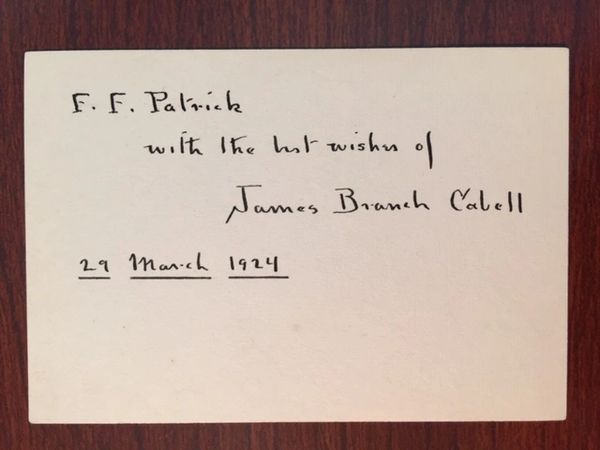 F. F. Patrick
with the best wishes of
James Branch Cabell
29 March 1924